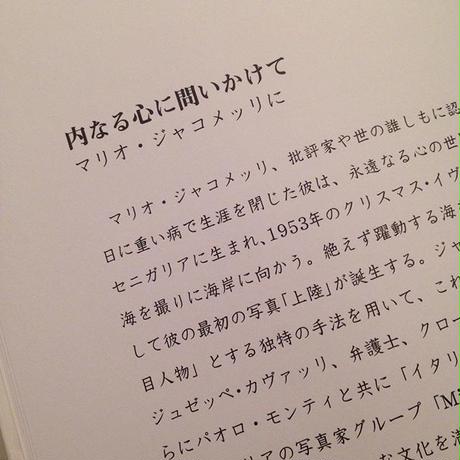 内なる心に問いかけて
マリオ・ジャコメッリに
マリオ・ジャコメッリ、批評家や世の誰しもに認
日に重い病で生涯を閉じた彼は、永遠なる心の世
セニガリアに生まれ、1953年のクリスマス・イヴ
海を撮りに海岸に向かう。絶えず躍動する海
して彼の最初の写真「上陸」が誕生する。ジャ
目人物」とする独特の手法を用いて、これ
ジュゼッペ・カヴァッリ、弁護士、クロー
らにパオロ・モンティと共に「イタリ
リアの写真家グループ「Mi
な文化を